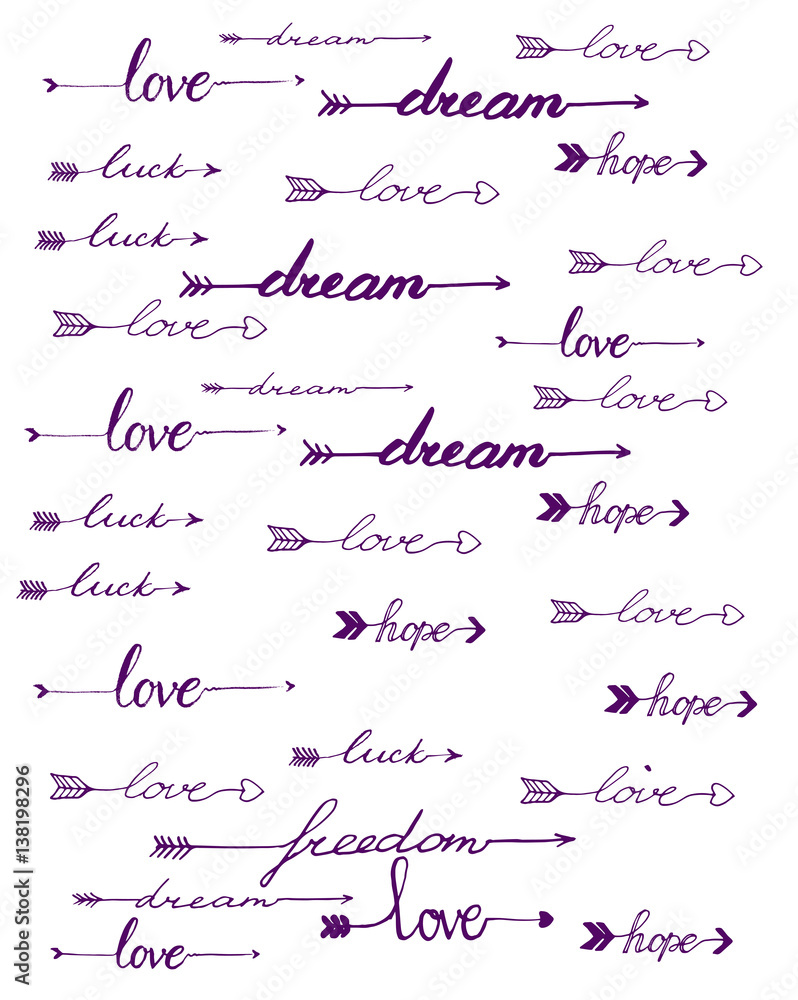 dream
love
love
dream
hope
luck
love
luck
love
dream
love
love
dream
love
love
dream
luck
hope
love
luck
love
hope
love
hope
luck
love
love
freedom
dream
love
hope
love
Adobe Stock | #138198296